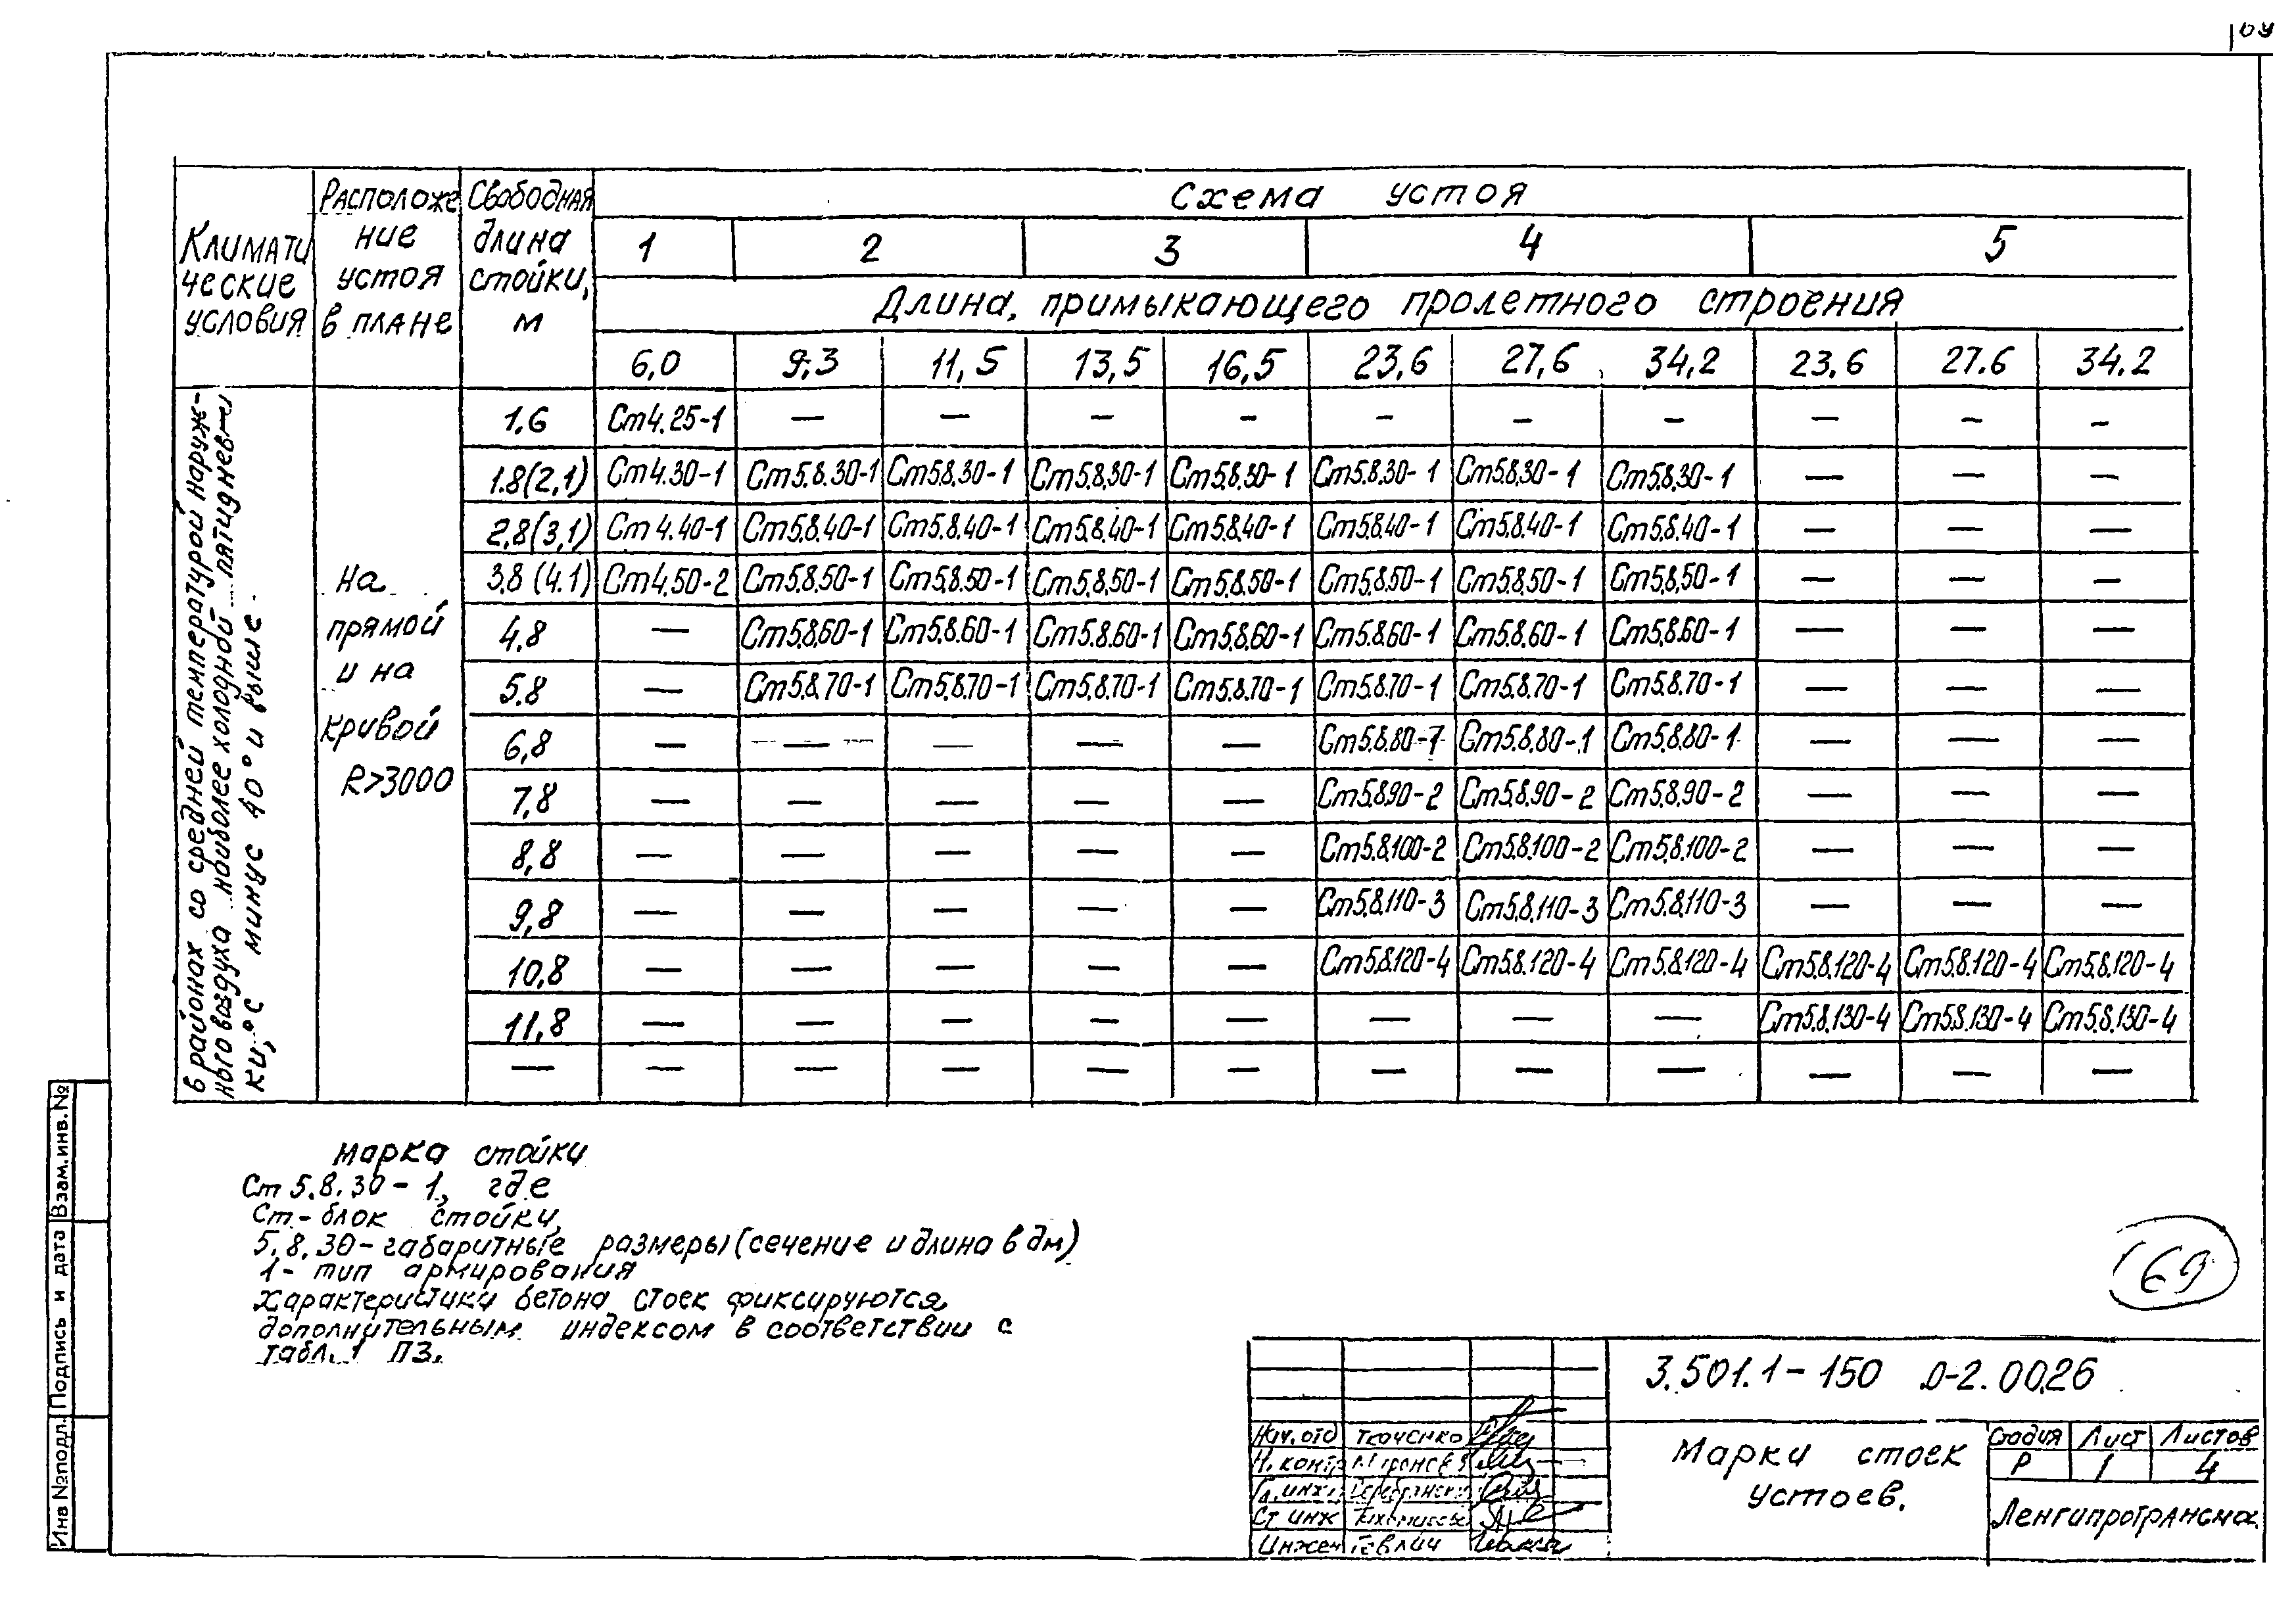 Климати
ческие
условия
Расположе
ние
устоя
в плане
Свободная
длина
стойки,
м
Схема устоя
1 2 3 4 5
Длина, примыкающего пролетного строения
6,0 9,3 11,5 13,5 16,5 23,6 27,6 34,2 23.6 27.6 34.2
в районах со средней температурой наруж-
ного воздуха наиболее холодной пятидневт
ки, °С минус 40° и выше
На
прямой
и на
кривой
R>3000
1,6 Ст4.25-1 — — — — — — — — — —
1.8(2,1) Ст4.30-1 Ст5.8.30-1 Ст5.8.30-1 Ст5.8.30-1 Ст5.8.30-1 Ст5.8.30-1 Ст5.8.30-1 Ст5.8.30-1 — — —
2,8(3,1) Ст4.40-1 Ст5.8.40-1 Ст5.8.40-1 Ст5.8.40-1 Ст5.8.40-1 Ст5.8.40-1 Ст5.8.40-1 Ст5.8.40-1 — — —
3,8(4.1) Ст4.50-2 Ст5.8.50-1 Ст5.8.50-1 Ст5.8.50-1 Ст5.8.50-1 Ст5.8.50-1 Ст5.8.50-1 Ст5.8.50-1 — — —
4,8 — Ст5.8.60-1 Ст5.8.60-1 Ст5.8.60-1 Ст5.8.60-1 Ст5.8.60-1 Ст5.8.60-1 Ст5.8.60-1 — — —
5.8 — Ст5.8.70-1 Ст5.8.70-1 Ст5.8.70-1 Ст5.8.70-1 Ст5.8.70-1 Ст5.8.70-1 Ст5.8.70-1 — — —
6,8 — — — — — Ст5.8.80-1 Ст5.8.80-1 Ст5.8.80-1 — — —
7,8 — — — — — Ст5.8.90-2 Ст5.8.90-2 Ст5.8.90-2 — — —
8,8 — — — — — Ст5.8.100-2 Ст5.8.100-2 Ст5.8.100-2 — — —
9,8 — — — — — Ст5.8.110-3 Ст5.8.110-3 Ст5.8.110-3 — — —
10,8 — — — — — Ст5.8.120-4 Ст5.8.120-4 Ст5.8.120-4 Ст5.8.120-4 Ст5.8.120-4 Ст5.8.120-4
11,8 — — — — — — — — Ст5.8.130-4 Ст5.8.130-4 Ст5.8.130-4
— — — — — — — — — — — —
Марка стойки
Ст 5.8.30-1, где
Ст-блок стойки,
5.8.30-габаритные размеры (сечение и длина в дм)
1- тип армирования
Характеристики бетона стоек фиксируются
дополнительным индексом в соответствии с
табл. 1 ПЗ.
69
Инв №подл. Подпись и дата Взам.инв.№
3.501.1-150 .0-2.0026
Нач.отд Ткаченко
Н. контр
Гл.инж
Ст инж
Инжен Гевлич
Марки стоек
устоев.
Стадия Лист Листов
Р 1 4
Ленгипротрансма